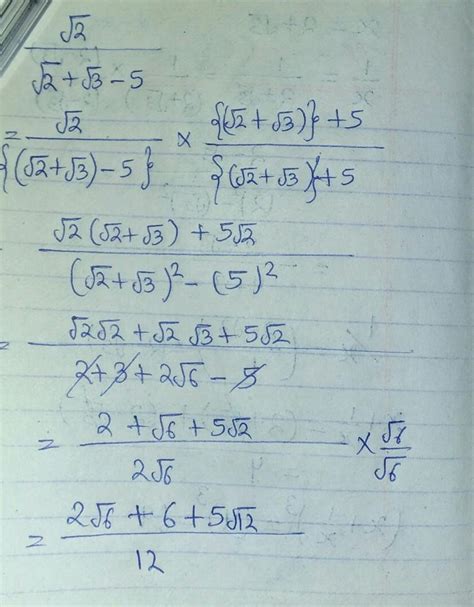 √2
√2 + √3 - 5
= √2 / {(√2+√3) - 5} × {(√2 + √3)} + 5 / {(√2 + √3)} + 5
√2 (√2 + √3) + 5√2
(√2 + √3)² - (5)²
= √2√2 + √2 √3 + 5√2
2 + 3 + 2√6 - 5
= 2 + √6 + 5√2 / 2√6 × √6 / √6
= 2√6 + 6 + 5√12 / 12